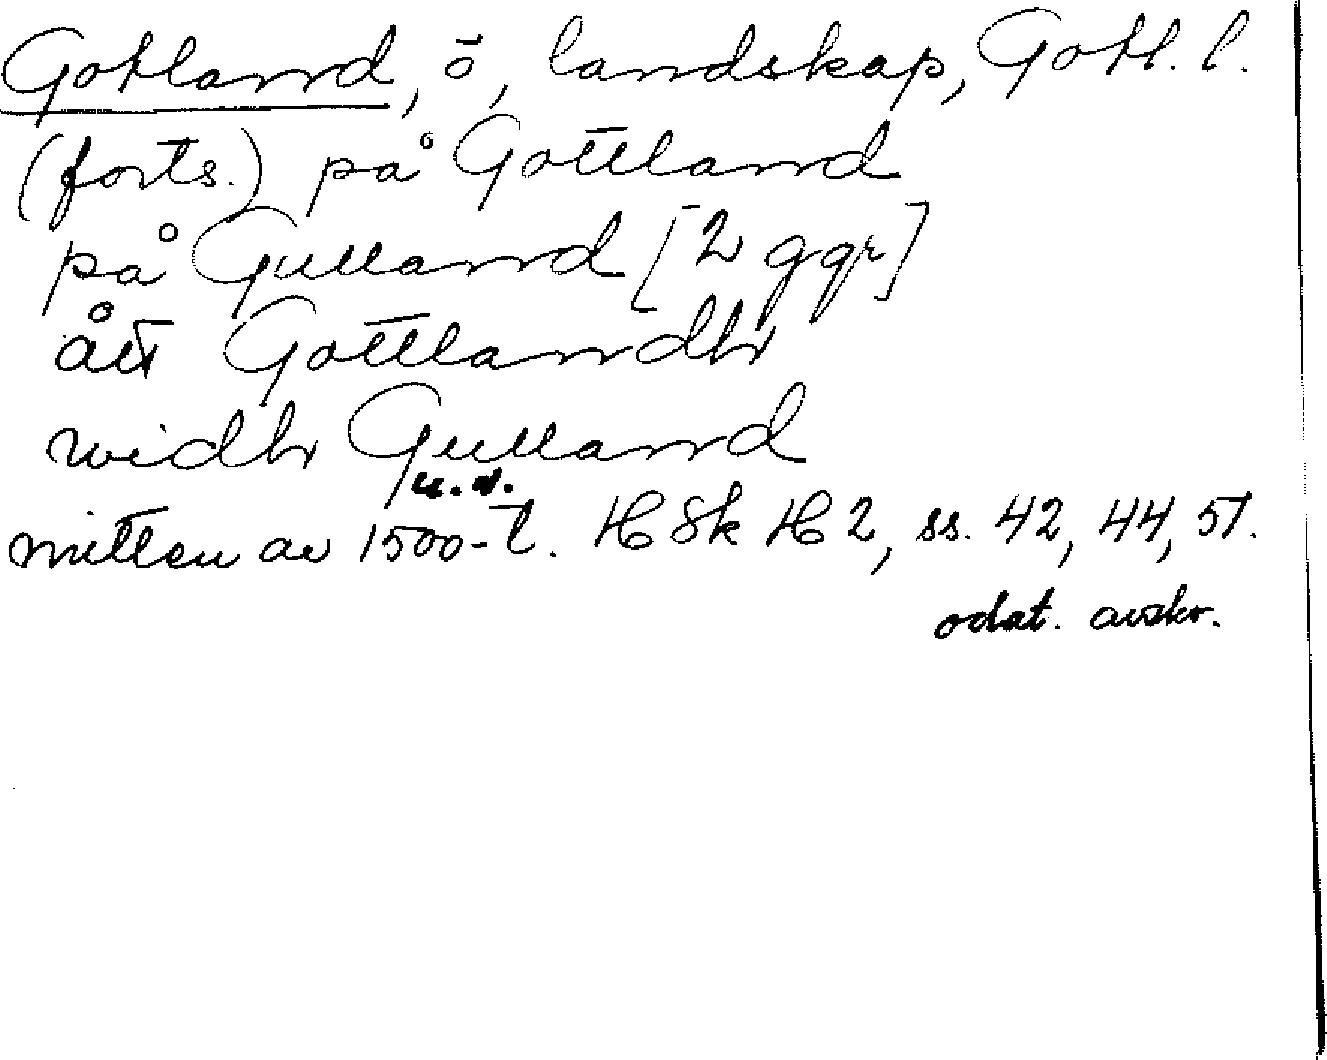 Gotland, ö, landskap, Gotl. l.
(forts.) på Gottland
på Gulland [2 ggr]
ått Gottlandh
widh Gulland
u. d.
mitten av 1500-t. H Sk H 2, ss. 42, 44, 51.
odat. avskr.